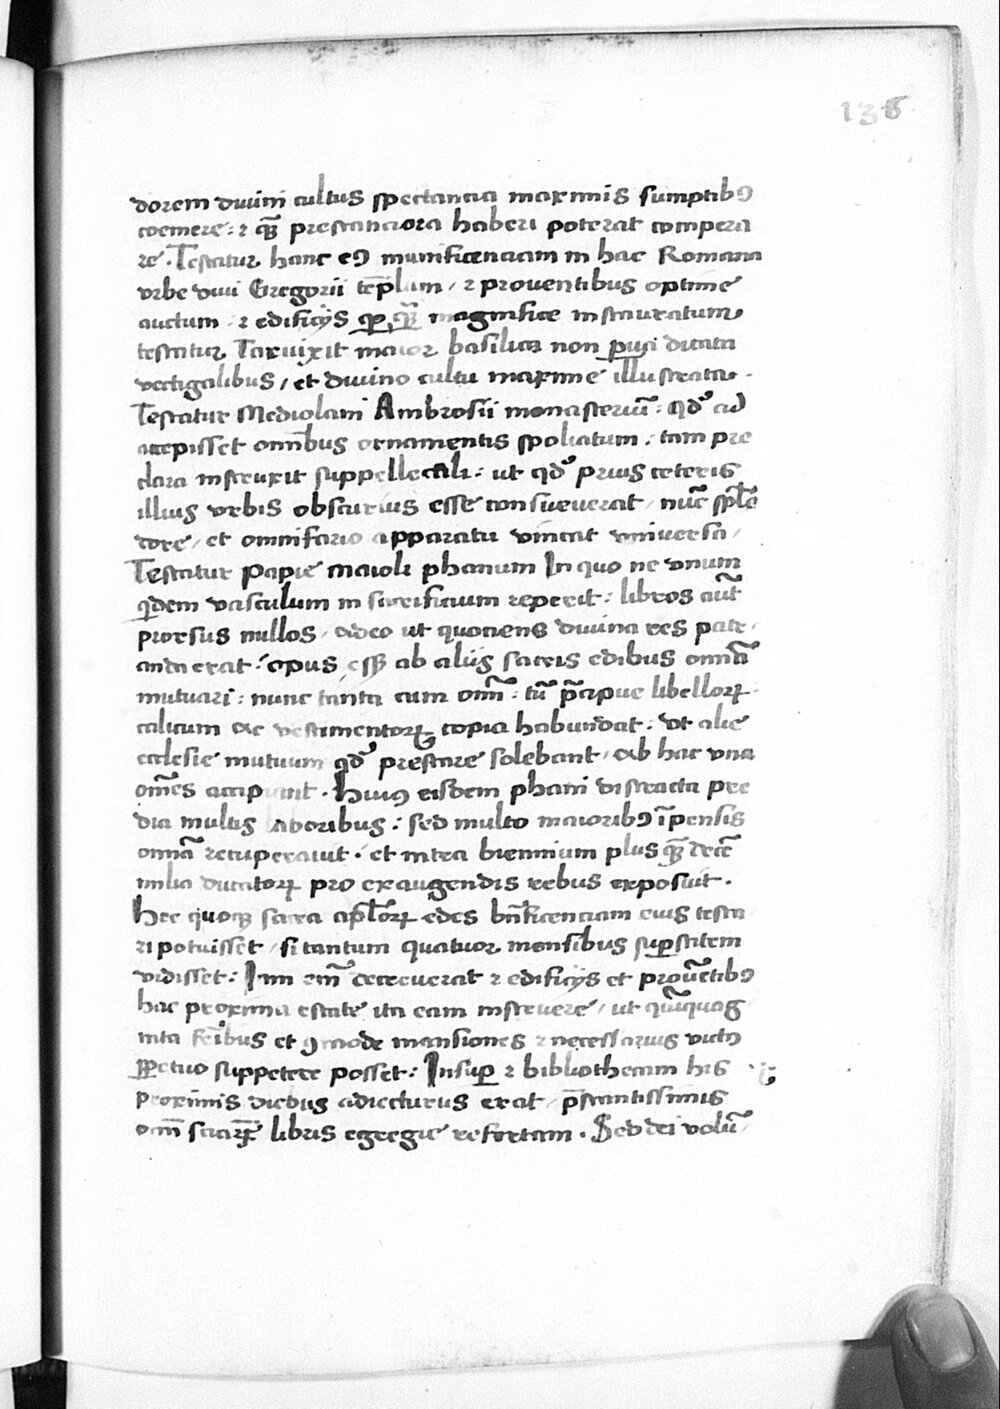 138
dorem diuini cultus spectantia maximis sumptibꝯ
coemere: ⁊ quā prestantiora haberi poterat compera
re. Testatur hanc eiꝯ munificentiam in hac Romana
vrbe diui Gregorii tēplum / ⁊ prouentibus optime
auctum ⁊ edificijs ꝙ magnifice instauratum
testatur Taruixit maior basilica non paruis ditata
vectigalibus / et diuino cultu maxime illustrata.
Testatur Mediolani Ambrosii monasteriū: qđ ad
accepisset omnibus ornamentis spoliatum: tam pre
clara instruxit suppellectili: ut qđ prius ceteris
illius vrbis obscurius esse consueuerat / nūc splē
dore / et omnifario apparatu vincat vniuersa /
Testatur Papie maioli phanum In quo ne vnum
qdem vasculum in sacrificium reperit: libros aūt
prorsus nullos / adeo ut quotiens diuina res patr
anda erat: opus esset ab aliis sacris edibus omnīa
mutuari: nunc tanta cum omī: tū p̄cipue libellorꝝ
calicum ac vestimentorꝝ copia habundat: vt alie
ecclesie mutuum qđ prestare solebant / ab hac vna
om̄es accipiant. Huiꝯ eisdem phani distracta pre
dia multis laboribus: sed multo maioribꝯ īpensis
omnīa recuperauit. et intra biennium plus quā decē
milia ducatorꝝ pro exaugendis rebus exposuit.
Hec quoqꝫ sacra apl̄orꝝ edes bn̄ficentiam eius testa
ri potuisset / si tantum quatuor mensibus suꝑstitem
vidisset: Iam em̄ decreuerat ⁊ edificijs et prouētibꝯ
hac proxima estate ita eam instruere / ut quīquag
inta fr̄ibus et ꝯmode mansiones ⁊ necessarius victꝯ
ꝑpetuo suppetere posset: Insuꝑ ⁊ bibliothecam his
proximis diebus adiecturus erat p̄stantissimis
om̄ sacrarꝝ libris egregie refertam. Sed dei volū